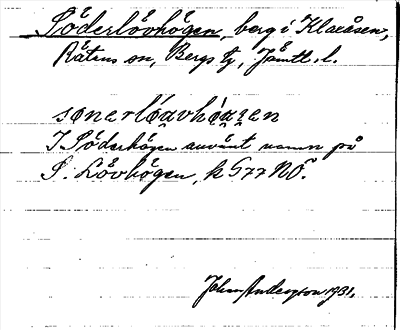 Söderlövhögen, berg i Klaxåsen,
Rätans sn, Bergs tg, Jämtl. l.
I Söderhögen använt namn på
S. Lövhögen, k G77 NÖ.
Johan Anderson 1931.